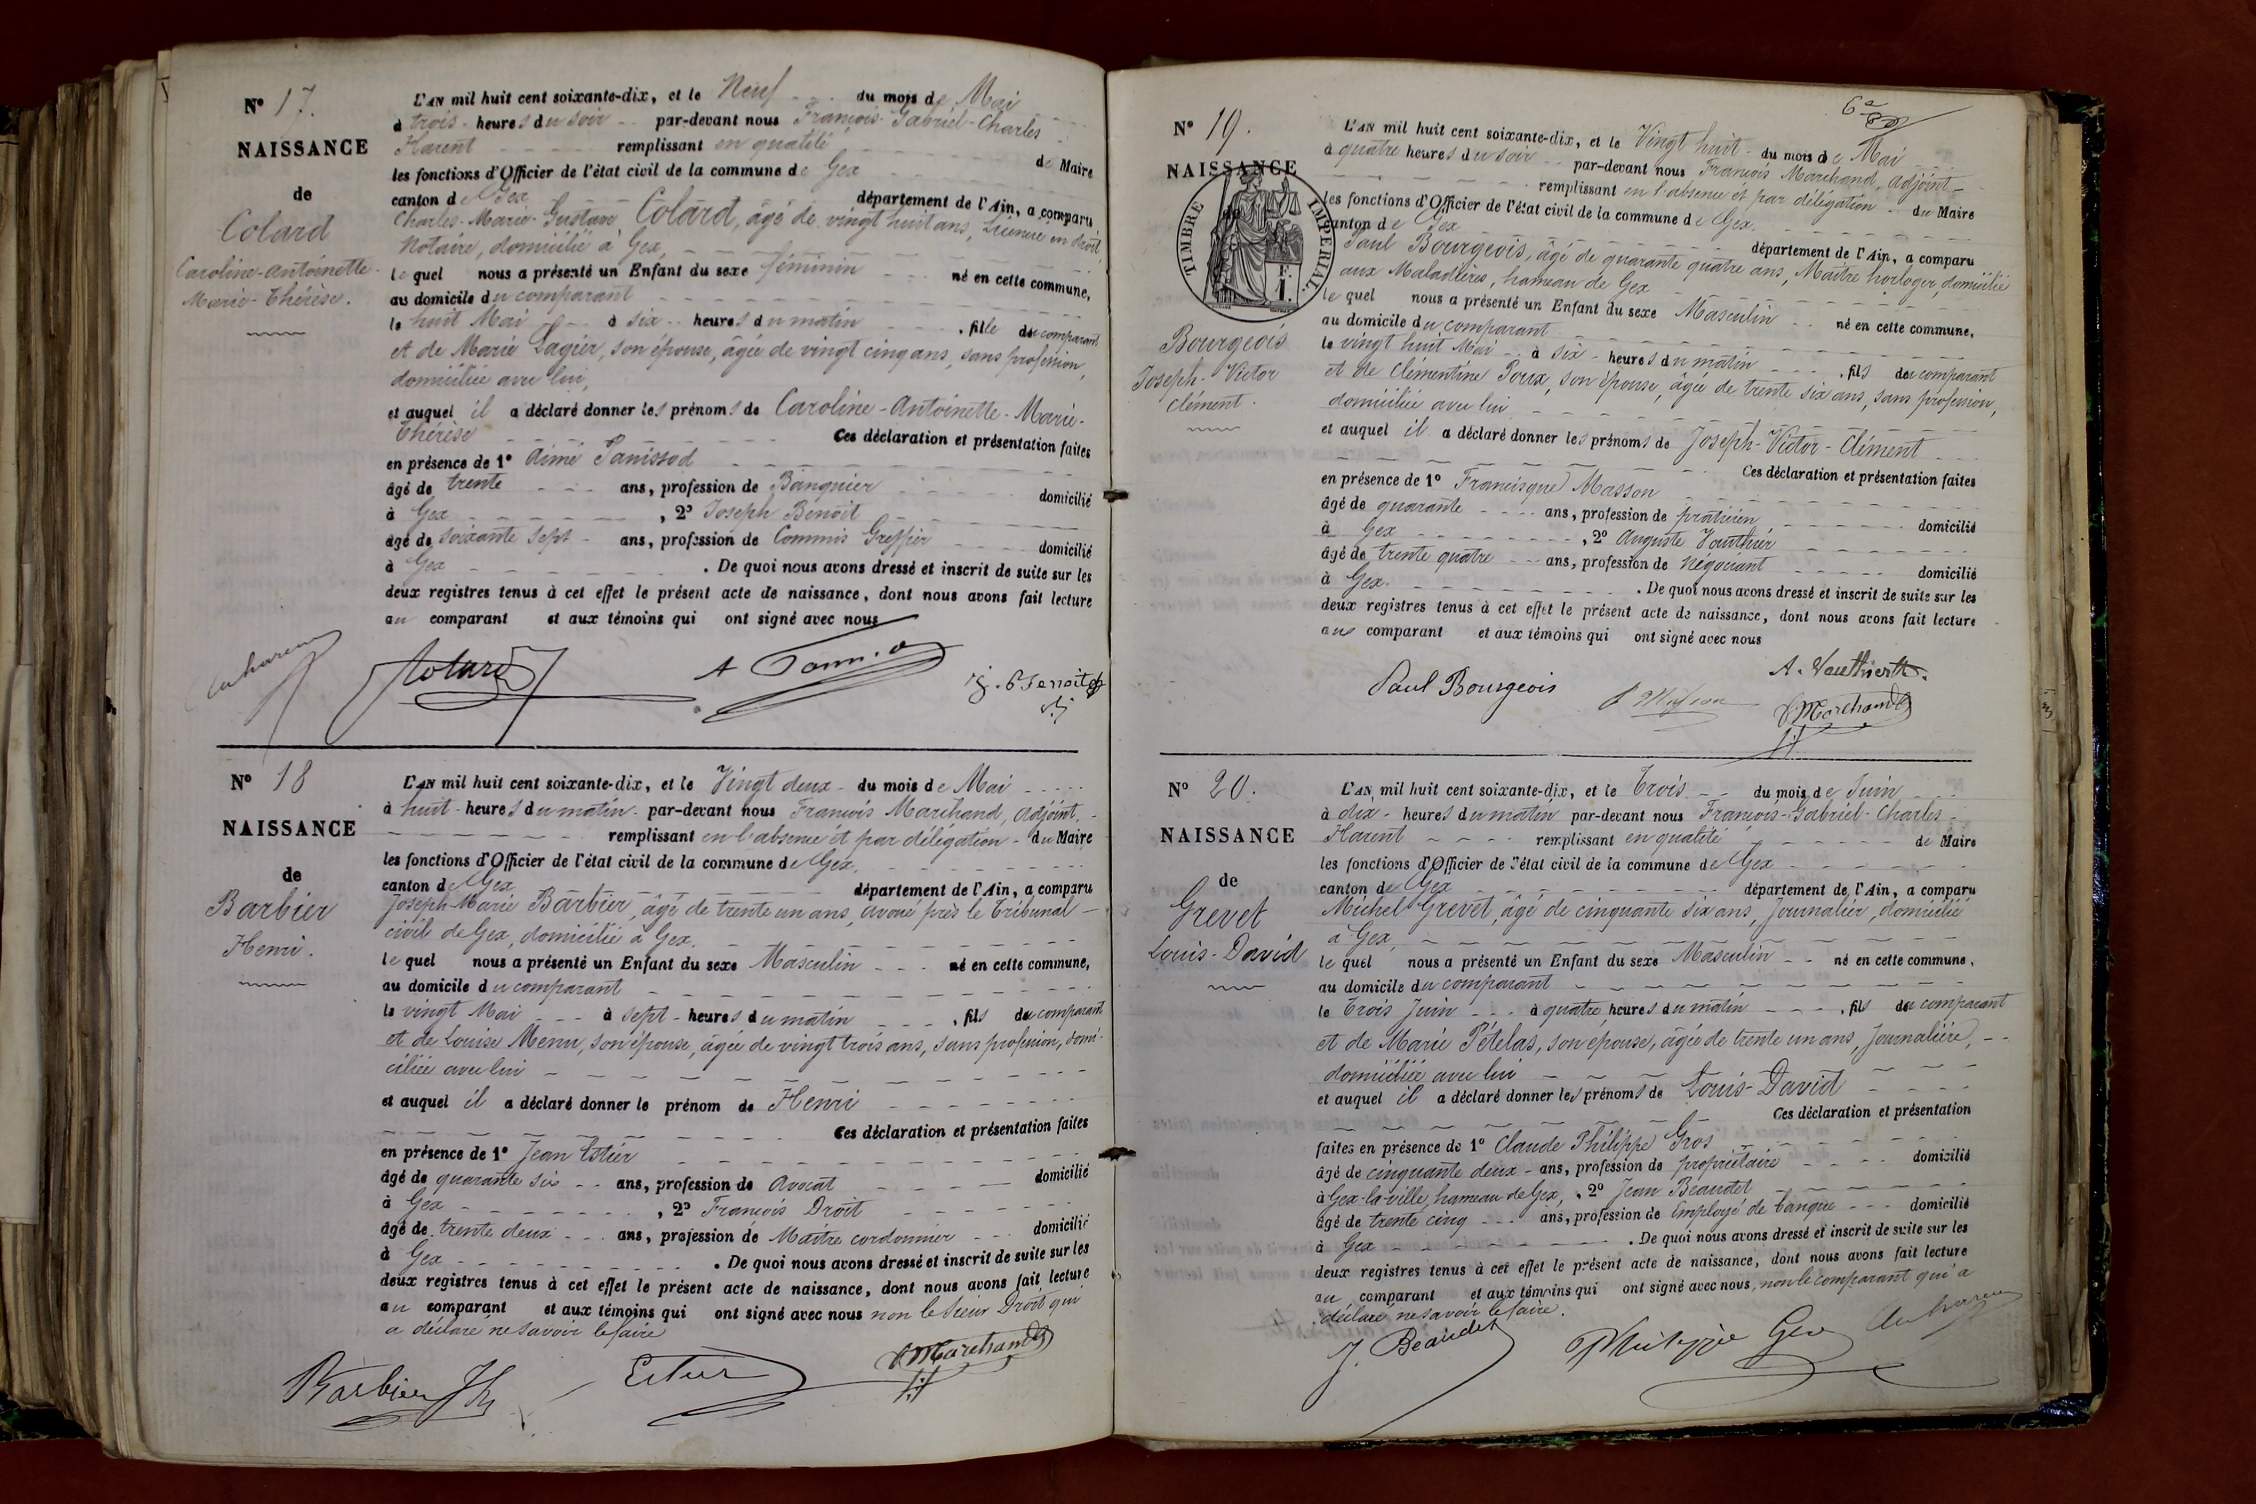 N° 17.
NAISSANCE
de
Colard
Caroline-Antoinette-
Marie-Thérèse.
L'AN mil huit cent soixante-dix, et le Neuf du mois de Mai
à trois heures du soir par-devant nous François-Gabriel-Charles
Harent remplissant en qualité
de Maire
les fonctions d'Officier de l'état civil de la commune de Gex
canton de Gex département de l'Ain, a comparu
Charles-Marie-Gustave Colard, âgé de vingt huit ans, Licencié en droit,
Notaire, domicilié à Gex,
le quel nous a présenté un Enfant du sexe féminin né en cette commune,
au domicile du comparant
le huit Mai à six heures du matin , fille du comparant
et de Marie Lagier, son épouse, âgée de vingt cinq ans, sans profession,
domiciliée avec lui,
et auquel il a déclaré donner les prénoms de Caroline-Antoinette-Marie-
Thérèse Ces déclaration et présentation faites
en présence de 1° Aimé Panissod
âgé de trente ans, profession de Banquier domicilié
à Gex , 2° Joseph Benoit
âgé de soixante sept ans, profession de Commis Greffier domicilié
à Gex . De quoi nous avons dressé et inscrit de suite sur les
deux registres tenus à cet effet le présent acte de naissance, dont nous avons fait lecture
au comparant et aux témoins qui ont signé avec nous
Colard
N° 18
NAISSANCE
de
Barbier
Henri.
L'AN mil huit cent soixante-dix, et le Vingt deux du mois de Mai
à huit heures du matin par-devant nous François Marchand, adjoint,
remplissant en l'absence et par délégation du Maire
les fonctions d'Officier de l'état civil de la commune de Gex,
canton de Gex département de l'Ain, a comparu
Joseph-Marie Barbier, âgé de trente un ans, avoué près le Tribunal
civil de Gex, domicilié à Gex.
le quel nous a présenté un Enfant du sexe Masculin né en cette commune,
au domicile du comparant
le vingt Mai à sept heures du matin , fils du comparant
et de Louise Menu, son épouse, âgée de vingt trois ans, sans profession, domi-
ciliée avec lui
et auquel il a déclaré donner le prénom de Henri
Ces déclaration et présentation faites
en présence de 1° Jean Estier
âgé de quarante six ans, profession de Avocat domicilié
à Gex , 2° François Droit
âgé de trente deux ans, profession de Maître cordonnier domicilié
à Gex . De quoi nous avons dressé et inscrit de suite sur les
deux registres tenus à cet effet le présent acte de naissance, dont nous avons fait lecture
au comparant et aux témoins qui ont signé avec nous non le sieur Droit qui
a déclaré ne savoir le faire
Barbier
F. Marchand
N° 19.
NAISSANCE
TIMBRE IMPERIAL.
F.
1.
Bourgeois
Joseph-Victor
Clément.
L'AN mil huit cent soixante-dix, et le Vingt huit du mois de Mai
à quatre heures du soir par-devant nous François Marchand, adjoint
remplissant en l'absence et par délégation du Maire
les fonctions d'Officier de l'état civil de la commune de Gex.
canton de Gex département de l'Ain, a comparu
Paul Bourgeois, âgé de quarante quatre ans, Maître horloger, domicilié
aux Maladières, hameau de Gex
le quel nous a présenté un Enfant du sexe Masculin né en cette commune,
au domicile du comparant
le vingt huit Mai à six heures du matin , fils du comparant
et de Clémentine Poux, son épouse, âgée de trente six ans, sans profession,
domiciliée avec lui
et auquel il a déclaré donner les prénoms de Joseph-Victor-Clément
Ces déclaration et présentation faites
en présence de 1° Francisque Masson
âgé de quarante ans, profession de praticien domicilié
à Gex , 2° Auguste Vauthier
âgé de trente quatre ans, profession de négociant domicilié
à Gex. . De quoi nous avons dressé et inscrit de suite sur les
deux registres tenus à cet effet le présent acte de naissance, dont nous avons fait lecture
au comparant et aux témoins qui ont signé avec nous
A. Vauthier
Paul Bourgeois
F. Marchand
N° 20.
NAISSANCE
de
Grevet
Louis-David
L'AN mil huit cent soixante-dix, et le Trois du mois de Juin
à dix heures du matin par-devant nous François-Gabriel-Charles
Harent remplissant en qualité de Maire
les fonctions d'Officier de l'état civil de la commune de Gex
canton de Gex département de l'Ain, a comparu
Michel Grevet, âgé de cinquante six ans, Journalier, domicilié
à Gex,
le quel nous a présenté un Enfant du sexe Masculin né en cette commune,
au domicile du comparant
le Trois Juin à quatre heures du matin , fils du comparant
et de Marie Pételas, son épouse, âgée de trente un ans, Journalière,
domiciliée avec lui
et auquel il a déclaré donner les prénoms de Louis-David
Ces déclaration et présentation
faites en présence de 1° Claude Philippe Gros
âgé de cinquante deux ans, profession de propriétaire domicilié
à Gex-la-ville, hameau de Gex, , 2° Jean Beaudet
âgé de trente cinq ans, profession de Employé de banque domicilié
à Gex . De quoi nous avons dressé et inscrit de suite sur les
deux registres tenus à cet effet le présent acte de naissance, dont nous avons fait lecture
au comparant et aux témoins qui ont signé avec nous, non le comparant qui a
déclaré ne savoir le faire.
J. Beaudet